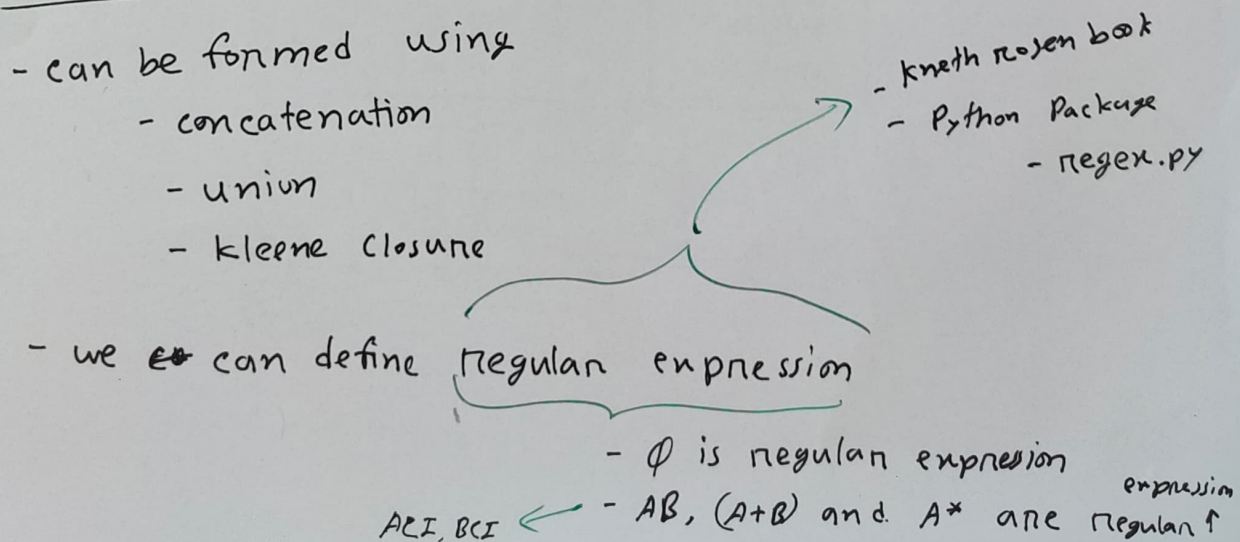 - can be formed using
- concatenation
- union
- kleene closure
- kneth rosen book
- Python Package
- regex.py
- we can define regular expression
- φ is regular expresion
- AB, (A+B) and A* are regular ↑ expression
A⊂I, B⊂I